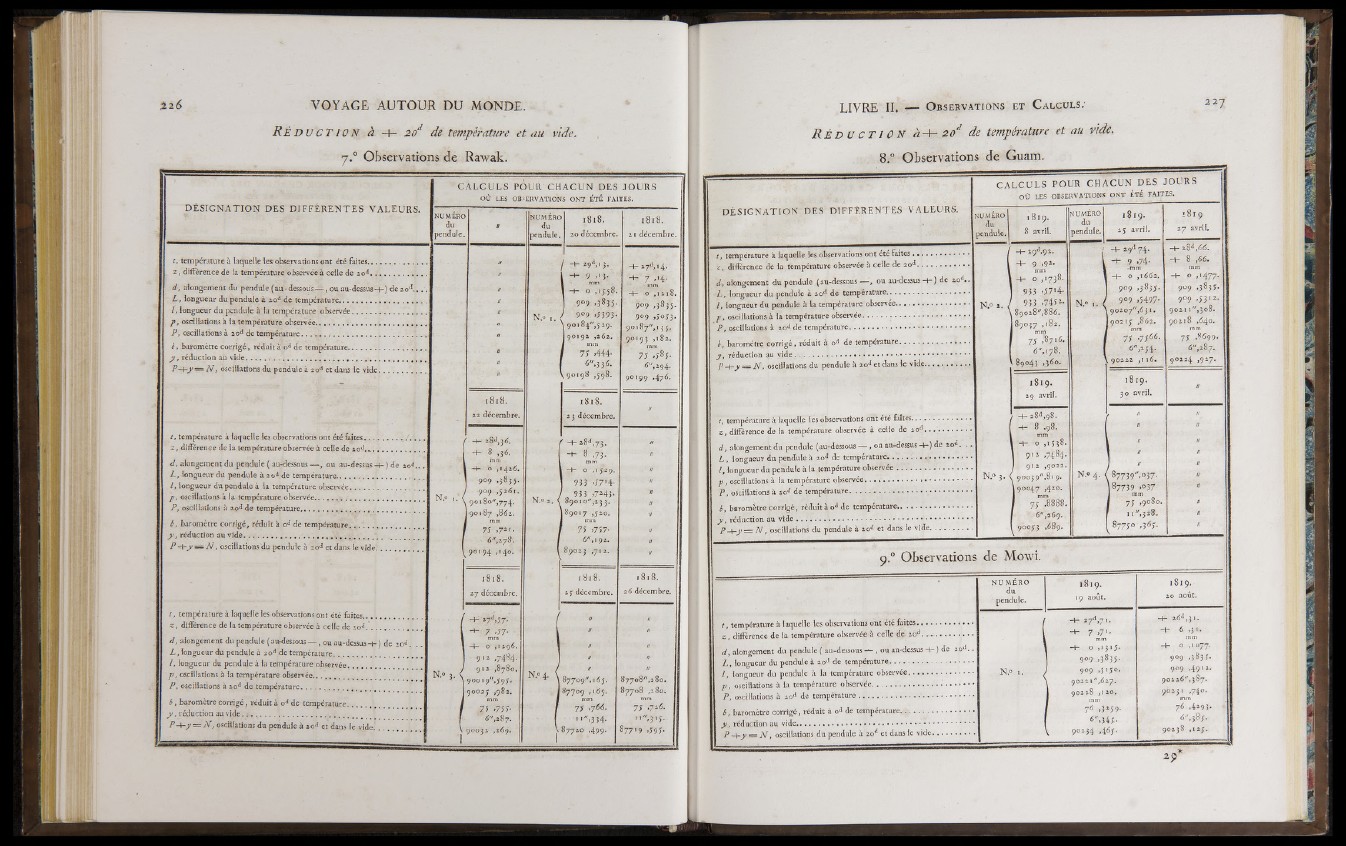 226 VOYAGE AUTOUR DU MONDE.
RÉDUCTION à + 20d de température et au vide.
7.° Observations de Rawak.
DÉSIGNATION DES DIFFÉRENTES VALEURS.
CALCULS POUR CHACUN DES JOURS
OÙ LES OBSERVATIONS ONT ÉTÉ FAITES.
NUMÉRO du pendule. " NUMÉRO du pendule. 1818. 20 décembre. 1818. 21 décembre.
t, température à laquelle les observations ont été faites. " + 29d,13. + 27d,14.
z, différence de la température observée à celle de 20d. " + 9 ,13. + 7 ,14.
mm mm
d, alongement du pendule (au-dessous—, ou au-dessus+) de 20d. " + 0 ,1558. + 0 ,1218.
L, longueur du pendule à 20d de température. " 909 ,3835. 909 ,3835.
l, longueur du pendule à la température observée. " N.° 1. 909 ,5393. 909 ,5053.
p, oscillations à la température observée. " 90184",529. 90187",135.
P, oscillations à 20d de température. " 90192 ,262. 90193 ,182.
mm mm
b, baromètre corrigé, réduit à 0d de température. " 75 ,444. 75 ,585.
y, réduction au vide. " 6",336. 6",294.
P+y=N, oscillations du pendule à 20d et dans le vide. " 90198 ,598. 90199 ,476.
1818. 22 décembre. 1818. 23 décembre. "
t, température à laquelle les observations ont été faites. + 28d,36. + 28d,73. "
z, différence de la température observée à celle de 20d. + 8 ,36. + 8 ,73. "
mm mm
d, alongement du pendule (au-dessous—, ou au-dessus+) de 20d. + 0 ,1426. + 0 ,1529. "
L, longueur du pendule à 20d de température. 909 ,3835. 933 ,5714. "
l, longueur du pendule à la température observée. N.° 1. 909 ,5261. N.° 2. 933 ,7243. "
p, oscillations à la température observée. 90180",774. 89010",233. "
P, oscillations à 20d de température. 90187 ,862. 89017 ,520. "
mm mm
b, baromètre corrigé, réduit à 0d de température. 75 ,721. 75 ,757. "
y, réduction au vide. 6",278. 6",192. "
P+y=N, oscillations du pendule à 20d et dans le vide. 90194 ,140. 89023 ,712. "
1818. 27 décembre. 1818. 25 décembre. 1818. 26 décembre.
t, température à laquelle les observations ont été faites. + 27d,57. " "
z, différence de la température observée à celle de 20d. + 7 ,57. " "
mm
d, alongement du pendule (au-dessous—, ou au-dessus+) de 20d. + 0 ,1296. " "
L, longueur du pendule à 20d de température. 912 ,7484. " "
l, longueur du pendule à la température observée. 912 ,8780. " "
p, oscillations à la température observée. N.° 3. 90019",595. N.° 4. 87709",165. 87708",280.
P, oscillations à 20d de température. 90025 ,982. 87709 ,165. 87708 ,280.
mm mm mm
b, baromètre corrigé, réduit à 0d de température. 75 ,755. 75 ,766. 75 ,726.
y, réduction au vide. 6",287. 11",334. 11",315.
P+y=N, oscillations du pendule à 20d et dans le vide. 90032 ,269. 87720 ,499. 87719 ,595.
LIVRE II. — OBSERVATIONS ET CALCULS. 227
RÉDUCTION à + 20d de température et au vide.
8.° Observations de Guam.
DÉSIGNATION DES DIFFÉRENTES VALEURS.
CALCULS POUR CHACUN DES JOURS
OÙ LES OBSERVATIONS ONT ÉTÉ FAITES.
NUMÉRO du pendule. 1819. 8 avril. NUMÉRO du pendule. 1819. 25 avril. 1819 27 avril.
t, température à laquelle les observations ont été faites. + 29d,92. + 29d 74. + 28d,66.
z, différence de la température observée à celle de 20d. + 9 ,92. + 9 ,74. + 8 ,66.
mm mm mm
d, alongement du pendule (au-dessous —, ou au-dessus +) de 20d. + 0 ,1738. + 0 ,1662. + 0 ,1477.
L, longueur du pendule à 20d de température. 933 ,5714. 909 ,3835. 909 ,3835.
l, longueur du pendule à la température observée. N.° 2. 933 ,7452. N.° 1. 909 ,5497. 909 ,5312.
p, oscillations à la température observée. 89028",886. 90207",631. 90211",308.
P, oscillations à 20d de température. 89037 ,182. 90215 ,862. 90218 ,640.
mm mm mm
b, baromètre corrigé, réduit à 0d de température. 75 ,8716. 75 ,7566. 75 ,8699.
y, réduction au vide. 6",178. 6",254. 6",287.
P+y=N, oscillations du pendule à 20d et dans le vide. 89043 ,360. 90222 ,116. 90224 ,927.
1819. 29 avril. 1819. 30 avril. "
t, température à laquelle les observations ont été faites. + 28d,98. " "
z, différence de la température observée à celle de 20d. + 8 ,98. " "
mm
d, alongement du pendule (au-dessous —, ou au-dessus +) de 20d. + 0 ,1538. " "
L, longueur du pendule à 20d de température. 912 ,7483. " "
l, longueur du pendule à la température observée. 912 ,9022. " "
p, oscillations à la température observée. N.° 3. 90039",819. N.° 4. 87739",037. "
P, oscillations à 20d de température. 90047 ,420. 87739 ,037 "
mm mm
b, baromètre corrigé, réduit à 0d de température. 75 ,8888. 75 ,9080. "
y, réduction au vide 6",269. 11",328. "
P+y=N, oscillations du pendule à 20d et dans le vide. 90053 ,689. 87750 ,365. "
9.° Observations de Mowi.
NUMÉRO du pendule. 1819. 19 août. 1819. 20 août.
t, température à laquelle les observations ont été faites. + 27d,71. + 26d,31.
z, différence de la température observée à celle de 20d. + 7 ,71. + 6 ,31.
mm mm
d, alongement du pendule (au-dessous —, ou au-dessus +) de 20d. + 0 ,1315. + 0 ,1077.
L, longueur du pendule à 20d de température. 909 ,3835. 909 ,3835.
l, longueur du pendule à la température observée. N.° 1. 909 ,5150. 909 ,4912.
p, oscillations à la température observée. 90221",627. 90226",387.
P, oscillations à 20d de température. 90228 ,120. 90231 ,740.
mm mm
b, baromètre corrigé, réduit à 0d de température. 76 ,3259. 76 ,4293.
y, réduction au vide. 6",345. 6",385.
P+y=N, oscillations du pendule à 20d et dans le vide. 90234 ,465. 90238 ,125.
29*